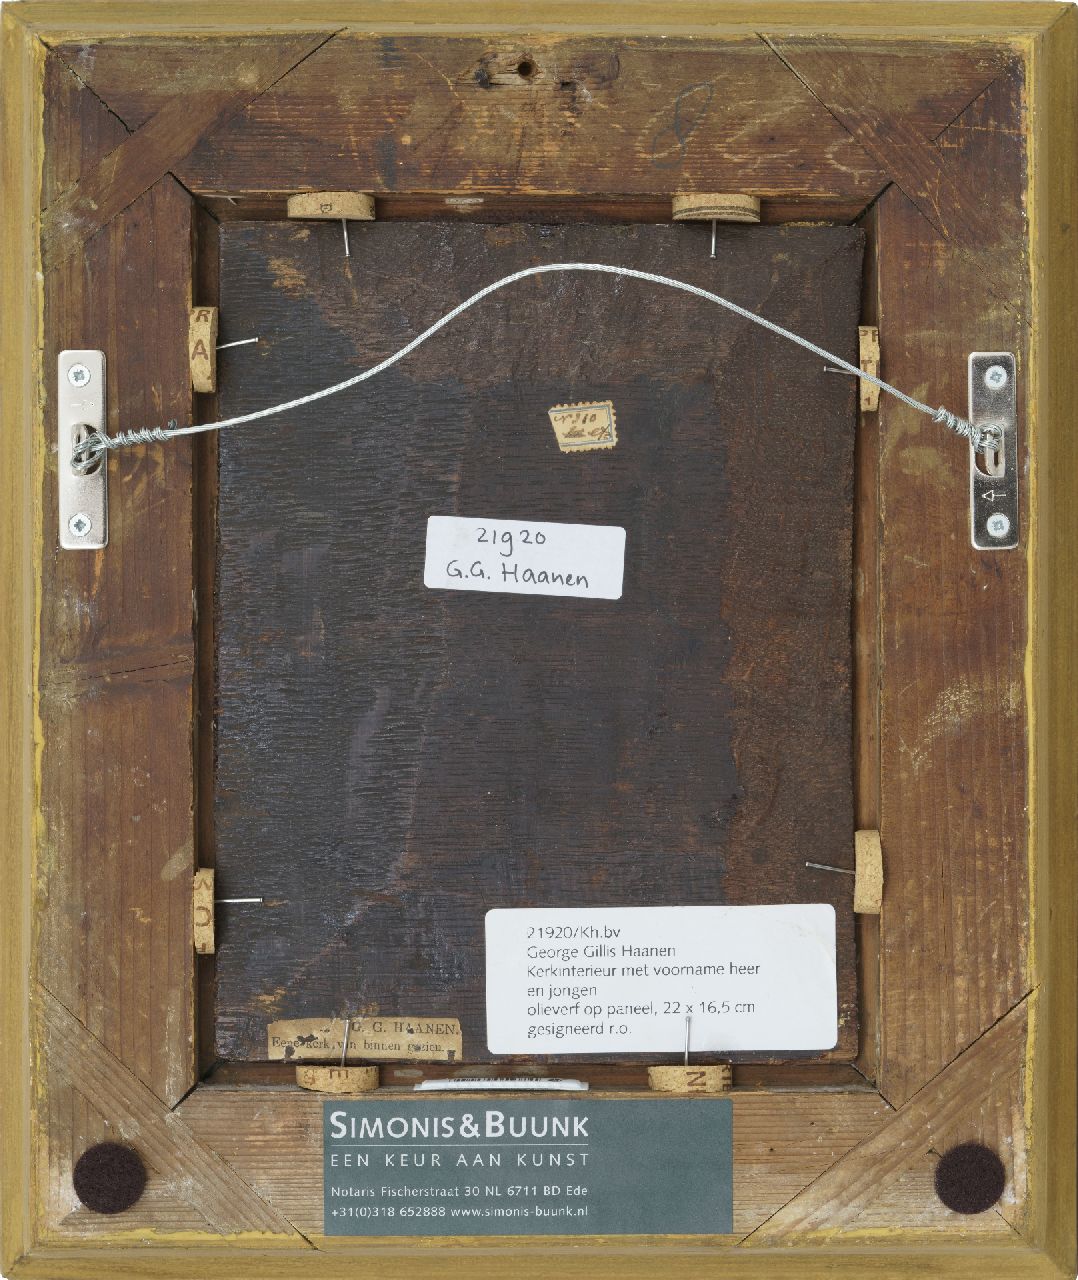 21920
G.G. Haanen
21920/Kh.bv
George Gillis Haanen
Kerkinterieur met voorname heer
en jongen
olieverf op paneel, 22 x 16,5 cm
gesigneerd r.o.
G. G. HAANEN.
Eene kerk, van binnen gezien.
SIMONIS & BUUNK
EEN KEUR AAN KUNST
Notaris Fischerstraat 30 NL 6711 BD Ede
+31(0)318 652888 www.simonis-buunk.nl